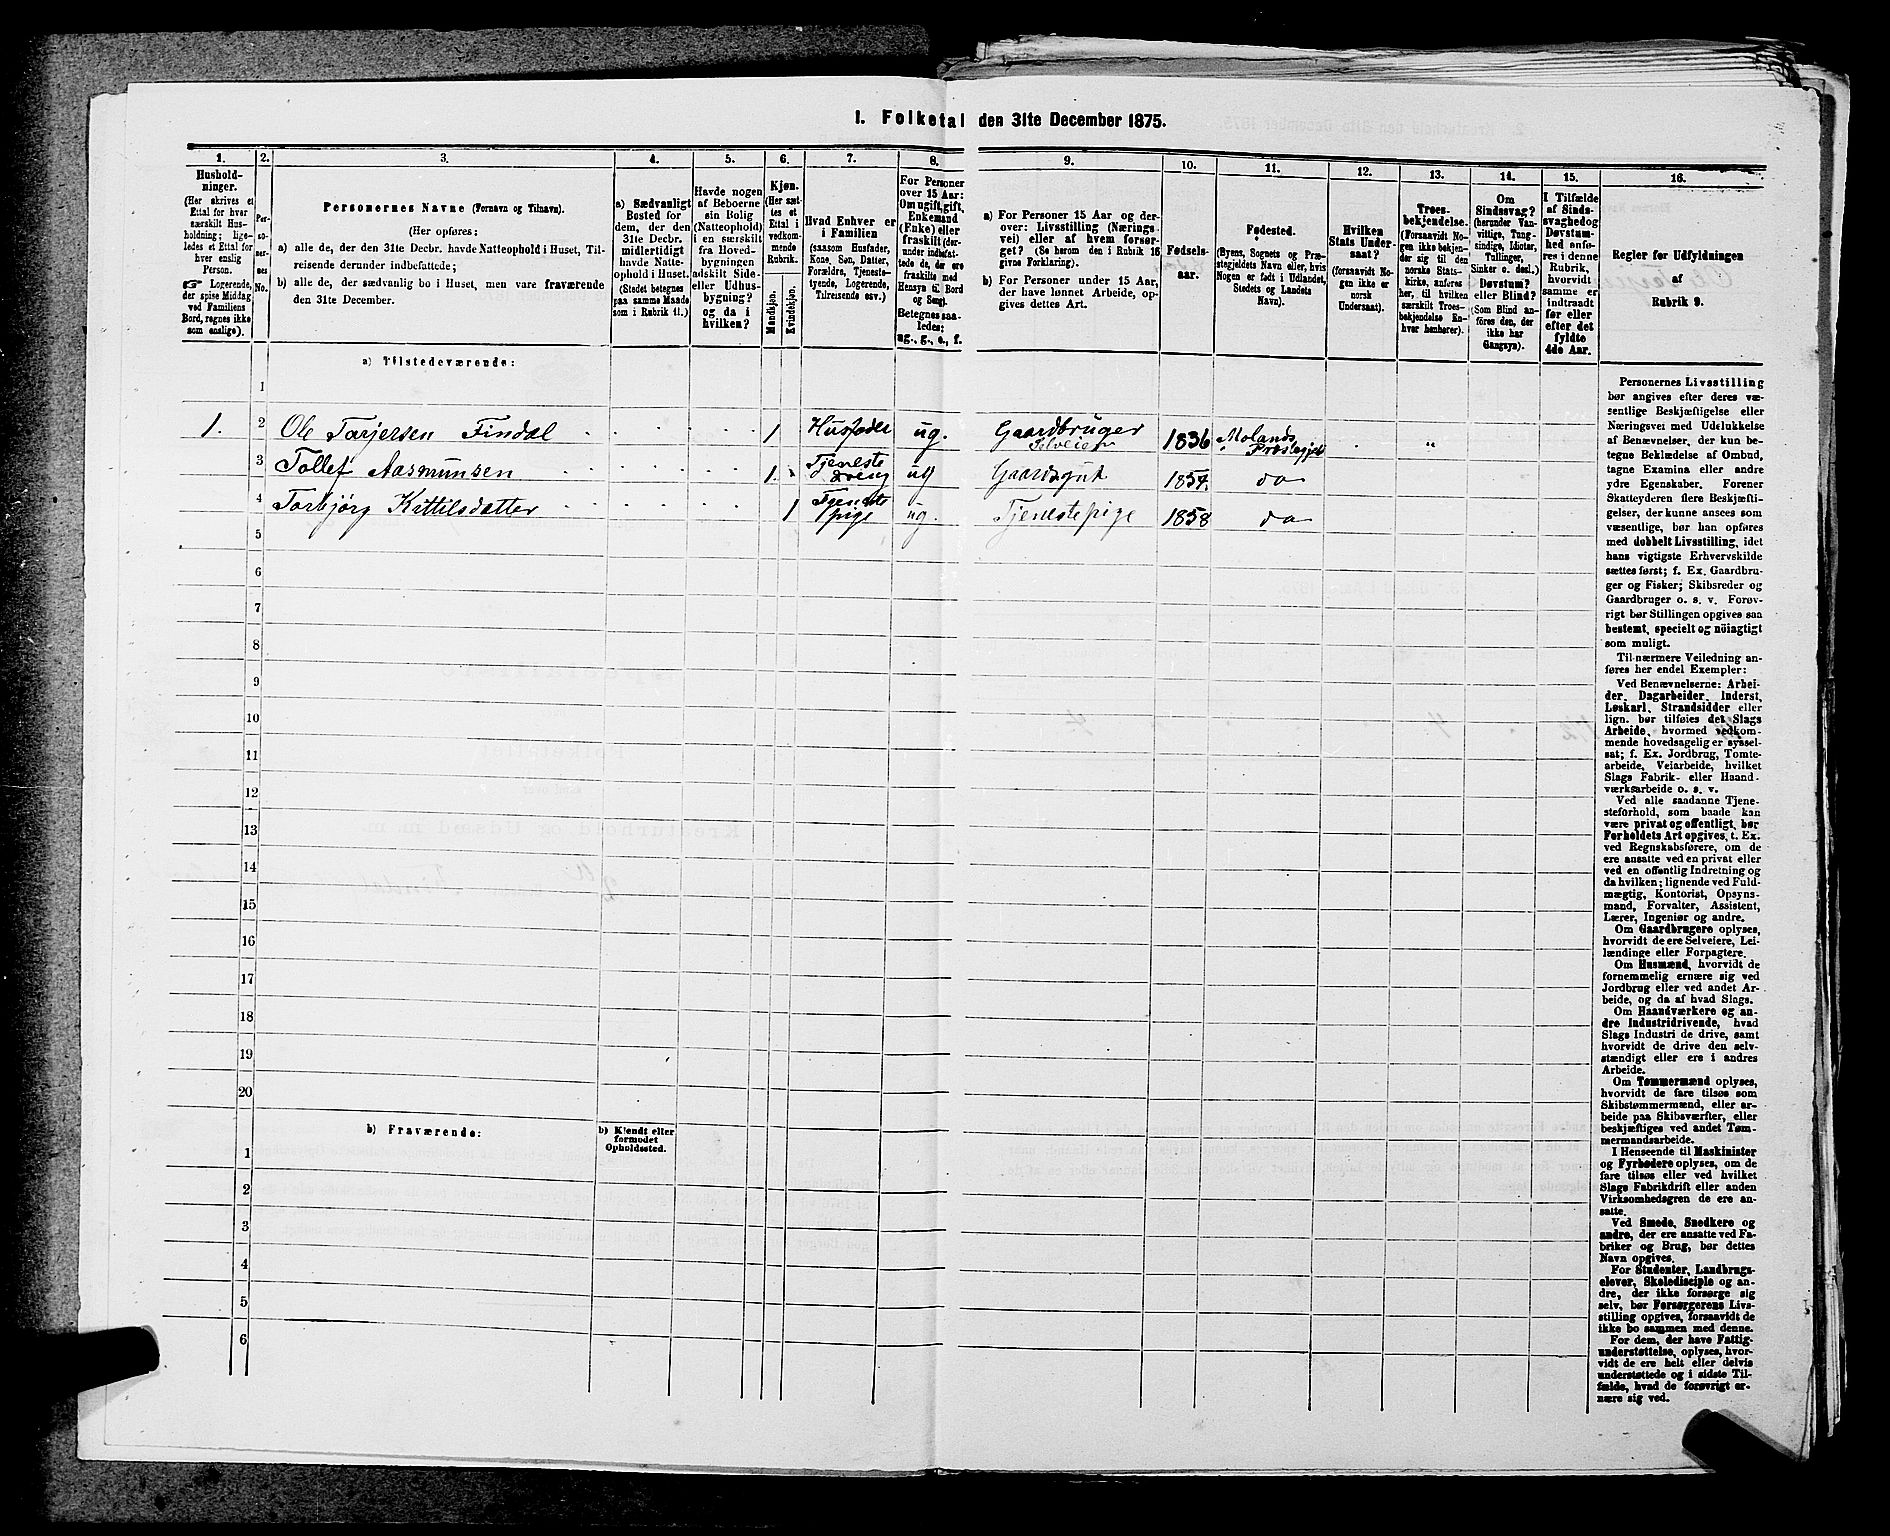 1. Folketal den 31te December 1875.
1.
Hushold-
ninger.
(Her skrives et
Ettal for hver
særskilt Hus-
holdning; lige-
ledes et Ettal for
hver enslig
Person.
☞ Logerende,
der spise Middag
ved Familiens
Bord, regnes ikke
som enslige).
2.
Per-
so-
ner-
nes
No.
3.
Personernes Navne (Fornavn og Tilnavn).
(Her opføres:
a) alle de, der den 31te Decbr. havde Natteophold i Huset, Til-
reisende derunder indbefattede;
b) alle de, der sædvanlig bo i Huset, men vare fraværende
den 31te December.
4.
a) Sædvanligt
Bosted for
dem, der den
31te Decbr.
midlertidigt
havde Natte-
ophold i Huset.
(Stedet betegnes
paa samme Maade
som i Rubrik 11.)
5.
Havde nogen
af Beboerne
sin Bolig
(Natteophold)
i en særskilt
fra Hoved-
bygningen
adskilt Side-
eller Udhus-
bygning?
og da i
hvilken?
6.
Kjøn.
(Her sæt-
tes et
Ettal i
vedkom-
mende
Rubrik.
Mandkjøn.
Kvindekjøn.
7.
Hvad Enhver er
i Familien
(saasom Husfader,
Kone, Søn, Datter,
Forældre, Tjeneste-
tyende, Logerende,
Tilreisende osv.)
8.
For Personer
over 15 Aar:
Om ugift, gift,
Enkemand
(Enke) eller
fraskilt (der-
under indbefat-
tede de, der ere
fraskilte med
Hensyn til Bord
og Seng).
Betegnes saa-
ledes:
ug., g., e., f.
9.
a) For Personer 15 Aar og der-
over: Livsstilling (Nærings-
vei) eller af hvem forsør-
get? (Se herom den i Rubrik 16
givne Forklaring).
b) For Personer under 15 Aar,
der have lønnet Arbeide, op-
gives dettes Art.
10.
Fødsels-
aar.
11.
Fødested.
(Byens, Sognets og Præ-
stegjeldets Navn eller, hvis
Nogen er født i Udlandet,
Stedets og Landets
Navn).
12.
Hvilken
Stats Under-
saat?
(forsaavidt No-
gen ikke er
norsk
Undersaat).
13.
Troes-
bekjendelse.
(Forsaavidt No-
gen ikke bekjen-
der sig til den
norske Stats-
kirke, anføres
her, til hvilken
særskilt Troes-
bekjendelse En-
hver henhører).
14.
Om
Sindssvag?
(herunder Van-
vittige, Tung-
sindige, Idioter,
Tullinger,
Sinker o. desl.)
Døvstum?
eller Blind?
(Som Blind an-
føres den, der
ikke har
Gangsyn).
15.
I Tilfælde
af Sinds-
svaghed og
Døvstum-
hed anfø-
res i denne
Rubrik,
hvorvidt
samme er
indtraadt
før eller
efter det
fyldte
4de Aar.
16.
Regler for Udfyldningen
af
Rubrik 9.
a) Tilstedeværende:
1
1. 2 Ole Tarjersen Findal 1 Husfader ug. Gaardbruger Selveier 1836 Molands Præstegjeld "
3 Tollef Aasmunsen 1. Tjeneste dreng ug Gaardsgut 1854. do
4 Torbjørg Kittilsdatter 1 Tjeneste pige ug. Tjenestepige 1858 do
5
6
7
8
9
10
11
12
13
14
15
16
17
18
19
20
b) Fraværende:
b) Kjendt eller
formodet
Opholdssted.
1
2
3
4
5
6
Personernes Livsstilling
bør angives efter deres væ-
sentlige Beskjæftigelse eller
Næringsvei med Udelukkelse
af Benævnelser, der kun be-
tegne Beklædelse af Ombud,
tagne Examina eller andre
ydre Egenskaber. Forener
Skatteyderen flere Beskjæfti-
gelser, der kunne ansees som
væsentlige, bør han opføres
med dobbelt Livsstilling, idet
hans vigtigste Erhvervskilde
sættes først; f. Ex. Gaardbru-
ger og Fisker; Skibsreder og
Gaardbruger o. s. v. Forøv-
rigt bør Stillingen opgives saa
bestemt, specielt og nöiagtigt
som muligt.
Til nærmere Veiledning an-
føres her endel Exempler:
Ved Benævnelserne: Arbei-
der, Dagarbeider, Inderst,
Løskarl, Strandsidder eller
lign. bør tilføies det Slags
Arbeide, hvormed vedkom-
mende hovedsagelig er syssel-
sat; f. Ex. Jordbrug, Tomte-
arbeide, Veiarbeide, hvilket
Slags Fabrik- eller Haand-
værksarbeide o. s. v.
Ved alle saadanne Tjene-
steforhold, som baade kan
være privat og offentligt, bør
Forholdets Art opgives, t. Ex.
ved Regnskabsførere, om de
ere ansatte ved en privat eller
ved en offentlig Indretning og
da hvilken; lignende ved Fuld-
mægtig, Kontorist, Opsyns-
mand, Forvalter, Assistent,
Lærer, Ingeniør og andre.
Om Gaardbrugere oplyses,
hvorvidt de ere Selveiere, Lei-
lændinge eller Forpagtere.
Om Husmænd, hvorvidt de
fornemmelig ernære sig ved
Jordbrug eller ved andet Ar-
beide, og da af hvad Slags.
Om Haandværkere og an-
dre Industridrivende, hvad
Slags Industri de drive, samt
hvorvidt de drive den selv-
stændigt eller ere i andres
Arbeide.
Om Tømmermænd oplyses,
hvorvidt de fare tilsøs som
Skibstømmermænd, eller ar-
beide paa Skibsværfter, eller
beskjæftiges ved andet Tøm-
mermandsarbeide.
I Henseende til Maskinister
og Fyrbødere oplyses, om de
fare tilsøs eller ved hvilket
Slags Fabrikdrift eller anden
Virksomhedsgren de ere an-
satte.
Ved Smede, Snedkere og
andre, der ere ansatte ved Fa-
briker og Brug, bør dettes
Navn opgives.
For Studenter, Landbrugs-
elever, Skoledisciple og an-
dre, der ikke forsørge sig
selv, bør Forsørgerens Livs-
stilling opgives, forsaavidt de
ikke bo sammen med denne.
For dem, der have Fattig-
understøttelse, oplyses, hvor-
vidt de ere helt eller delvis
understøttede og i sidste Til-
fælde, hvad de forøvrigt er-
nære sig ved.